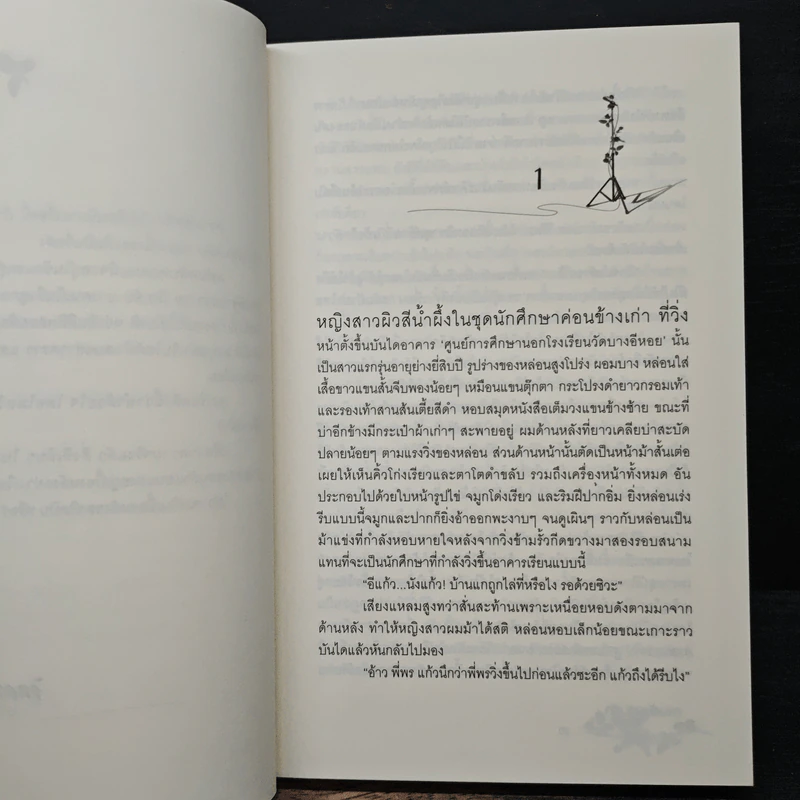 1
หญิงสาวผิวสีน้ำผึ้งในชุดนักศึกษาค่อนข้างเก่า ที่วิ่ง
หน้าตั้งขึ้นบันไดอาคาร ‘ศูนย์การศึกษานอกโรงเรียนวัดบางอีหอย’ นั้น
เป็นสาวแรกรุ่นอายุย่างยี่สิบปี รูปร่างของหล่อนสูงโปร่ง ผอมบาง หล่อนใส่
เสื้อขาวแขนสั้นจีบพองน้อยๆ เหมือนแขนตุ๊กตา กระโปรงดำยาวกรอมเท้า
และรองเท้าสานส้นเตี้ยสีดำ หอบสมุดหนังสือเต็มวงแขนข้างซ้าย ขณะที่
บ่าอีกข้างมีกระเป๋าผ้าเก่าๆ สะพายอยู่ ผมด้านหลังที่ยาวเคลียบ่าสะบัด
ปลายน้อยๆ ตามแรงวิ่งของหล่อน ส่วนด้านหน้านั้นตัดเป็นหน้าม้าสั้นเต่อ
เผยให้เห็นคิ้วโก่งเรียวและตาโตดำขลับ รวมถึงเครื่องหน้าทั้งหมด อัน
ประกอบไปด้วยใบหน้ารูปไข่ จมูกโด่งเรียว และริมฝีปากอิ่ม ยิ่งหล่อนเร่ง
รีบแบบนี้จมูกและปากก็ยิ่งอ้าออกพะงาบๆ จนดูเผินๆ ราวกับหล่อนเป็น
ม้าแข่งที่กำลังหอบหายใจหลังจากวิ่งข้ามรั้วกีดขวางมาสองรอบสนาม
แทนที่จะเป็นนักศึกษาที่กำลังวิ่งขึ้นอาคารเรียนแบบนี้
"อีแก้ว...นังแก้ว! บ้านแกถูกไล่ที่หรือไง รอด้วยซิวะ"
เสียงแหลมสูงทว่าสั่นสะท้านเพราะเหนื่อยหอบดังตามมาจาก
ด้านหลัง ทำให้หญิงสาวผมม้าได้สติ หล่อนหอบเล็กน้อยขณะเกาะราว
บันไดแล้วหันกลับไปมอง
"อ้าว พี่พร แก้วนึกว่าพี่พรวิ่งขึ้นไปก่อนแล้วซะอีก แก้วถึงได้รีบไง"